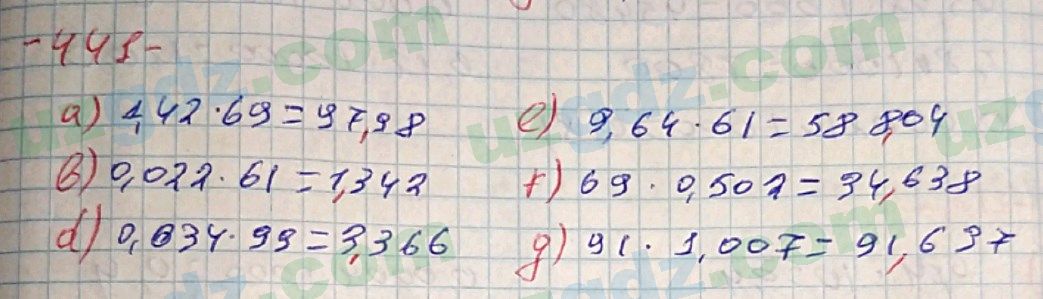 -441-
a) 1,42·69=97,98
b) 0,022·61=1,342
d) 0,034·99=3,366
e) 9,64·61=588,04
f) 69·0,502=34,638
g) 91·1,007=91,637
uzgdz.com